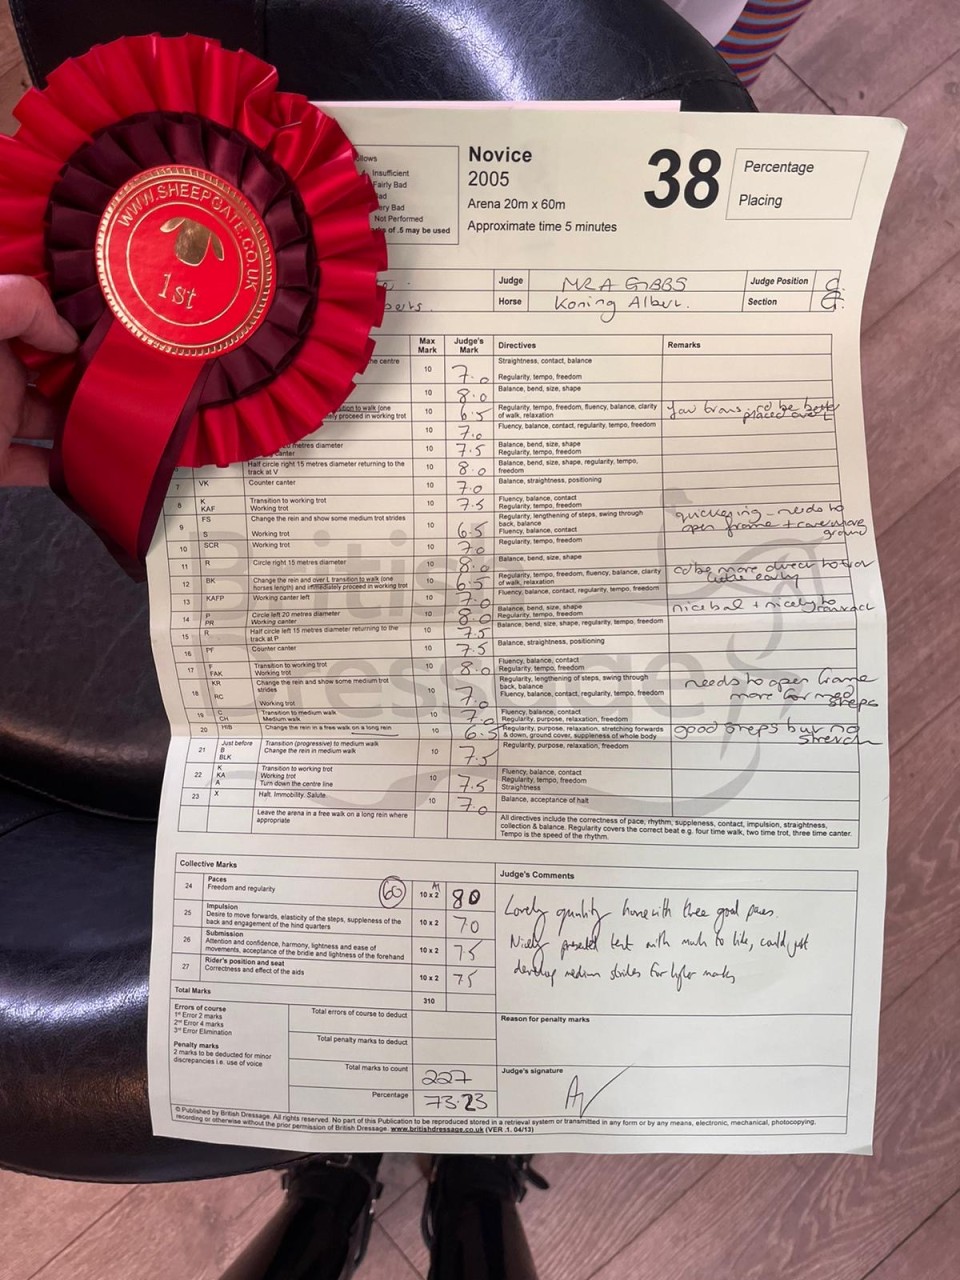 Novice
2005
Arena 20m x 60m
Approximate time 5 minutes
38
Percentage
Placing
Insufficient
Fairly Bad
Not Performed
of .5 may be used
WWW.SHEEPGATE.CO.UK
1st
Judge MR A GIBBS Judge Position C
Horse Koning Albert. Section
Max Mark Judge's Mark Directives Remarks
the centre 10 7.0 Straightness, contact, balance
Regularity, tempo, freedom
10 8.0 Balance, bend, size, shape
transition to walk (one
proceed in working trot 10 6.5 Regularity, tempo, freedom, fluency, balance, clarity
of walk, relaxation
10 7.0 Fluency, balance, contact, regularity, tempo, freedom
metres diameter
canter 10 7.5 Balance, bend, size, shape
Regularity, tempo, freedom
Half circle right 15 metres diameter returning to the
track at V 10 8.0 Balance, bend, size, shape, regularity, tempo,
freedom
7 VK Counter canter 10 7.0 Balance, straightness, positioning
8 K Transition to working trot 10 7.5 Fluency, balance, contact
KAF Working trot Regularity, tempo, freedom
9 FS Change the rein and show some medium trot strides 10 6.5 Regularity, lengthening of steps, swing through
back, balance quickening - needs to
S Working trot Fluency, balance, contact open frame + cover more
ground
10 SCR Working trot 10 7.0 Regularity, tempo, freedom
11 R Circle right 15 metres diameter 10 8.0 Balance, bend, size, shape
12 BK Change the rein and over L transition to walk (one
horses length) and immediately proceed in working trot 10 6.5 Regularity, tempo, freedom, fluency, balance, clarity
of walk, relaxation cd be more direct
little early
13 KAFP Working canter left 10 7.0 Fluency, balance, contact, regularity, tempo, freedom
14 P Circle left 20 metres diameter 10 8.0 Balance, bend, size, shape nice bal + nicely to
PR Working canter Regularity, tempo, freedom
15 R Half circle left 15 metres diameter returning to the
track at P 10 7.5 Balance, bend, size, shape, regularity, tempo, freedom
16 PF Counter canter 7.5 Balance, straightness, positioning
17 F Transition to working trot 10 8.0 Fluency, balance, contact
FAK Working trot Regularity, tempo, freedom
18 KR Change the rein and show some medium trot
strides 10 7.0 Regularity, lengthening of steps, swing through
back, balance needs to open frame
RC Working trot Fluency, balance, contact, regularity, tempo, freedom more for med
steps
19 C Transition to medium walk 10 7.0 Fluency, balance, contact
CH Medium walk Regularity, purpose, relaxation, freedom
20 HB Change the rein in a free walk on a long rein 10 6.5 Regularity, purpose, relaxation, stretching forwards
& down, ground cover, suppleness of whole body good steps but no
stretch
21 Just before
B
BLK Transition (progressive) to medium walk
Change the rein in medium walk 10 7.5 Regularity, purpose, relaxation, freedom
22 K Transition to working trot 10 7.5 Fluency, balance, contact
KA Working trot Regularity, tempo, freedom
A Turn down the centre line Straightness
23 X Halt. Immobility. Salute 10 7.0 Balance, acceptance of halt
Leave the arena in a free walk on a long rein where
appropriate
All directives include the correctness of pace, rhythm, suppleness, contact, impulsion, straightness,
collection & balance. Regularity covers the correct beat e.g. four time walk, two time trot, three time canter.
Tempo is the speed of the rhythm.
British
Dressage
Collective Marks
24 Paces
Freedom and regularity 60 10 x 2 80
25 Impulsion
Desire to move forwards, elasticity of the steps, suppleness of the
back and engagement of the hind quarters 10 x 2 70
26 Submission
Attention and confidence, harmony, lightness and ease of
movements, acceptance of the bridle and lightness of the forehand 10 x 2 75
27 Rider's position and seat
Correctness and effect of the aids 10 x 2 75
Total Marks 310
Judge's Comments
Lovely quality horse with three good paces.
Nicely presented test with much to like, could just
develop medium strides for higher marks
Errors of course
1st Error 2 marks
2nd Error 4 marks
3rd Error Elimination
Penalty marks
2 marks to be deducted for minor
discrepancies i.e. use of voice
Total errors of course to deduct
Total penalty marks to deduct
Total marks to count 227
Percentage 73.23
Reason for penalty marks
Judge's signature
© Published by British Dressage. All rights reserved. No part of this Publication to be reproduced stored in a retrieval system or transmitted in any form or by any means, electronic, mechanical, photocopying,
recording or otherwise without the prior permission of British Dressage. www.britishdressage.co.uk (VER .1. 04/13)